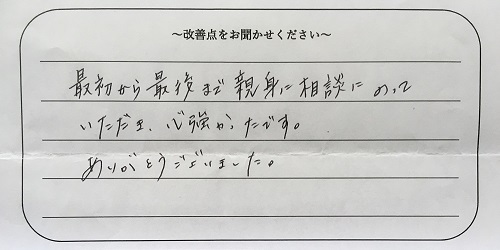 ～改善点をお聞かせください～
最初から最後まで親身に相談にのって
いただき、心強かったです。
ありがとうございました。